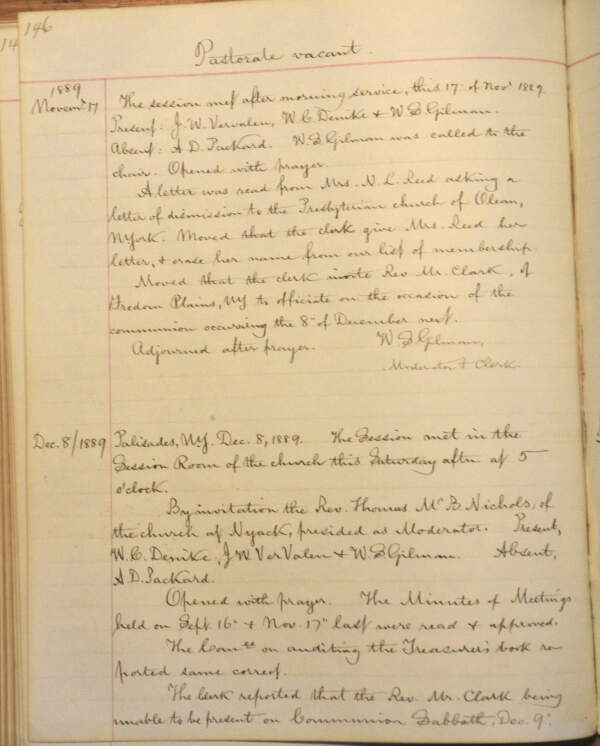 146
14
Pastorate vacant.
1889
Novem' 17
The session met after morning service, this 17" of Nov' 1889.
Present: J. W. Vervalen, W. C. Denike & W. S. Gilman.
Absent: A. D. Packard. W. S. Gilman was called to the
chair. Opened with prayer.
A letter was read from Mrs. N. L. Reed asking a
letter of dismission to the Presbyterian church of Olean,
NYork. Moved that the clerk give Mrs. Reed her
letter, & erase her name from our list of membership.
Moved that the clerk invite Rev. Mr. Clark, of
Fredom Plains, NY to officiate on the occasion of the
communion occurring the 8" of December next.
Adjourned after prayer. W. S. Gilman,
Moderator & Clerk
Dec. 8/1889
Palisades, N.Y. Dec. 8, 1889. The Session met in the
Session Room of the church this Saturday aftn. at 5
o'clock.
By invitation the Rev. Thomas Mc B. Nichols, of
the church at Nyack, presided as Moderator. Present,
W. C. Denike, J. W. VerValen & W. S. Gilman. Absent,
A. D. Packard.
Opened with prayer. The Minutes of Meetings
held on Sept. 16" & Nov. 17" last were read & approved.
The Comee on auditing the Treasurer's book re
ported same correct.
The Clerk reported that the Rev. Mr. Clark being
unable to be present on Communion Sabbath, Dec. 9".